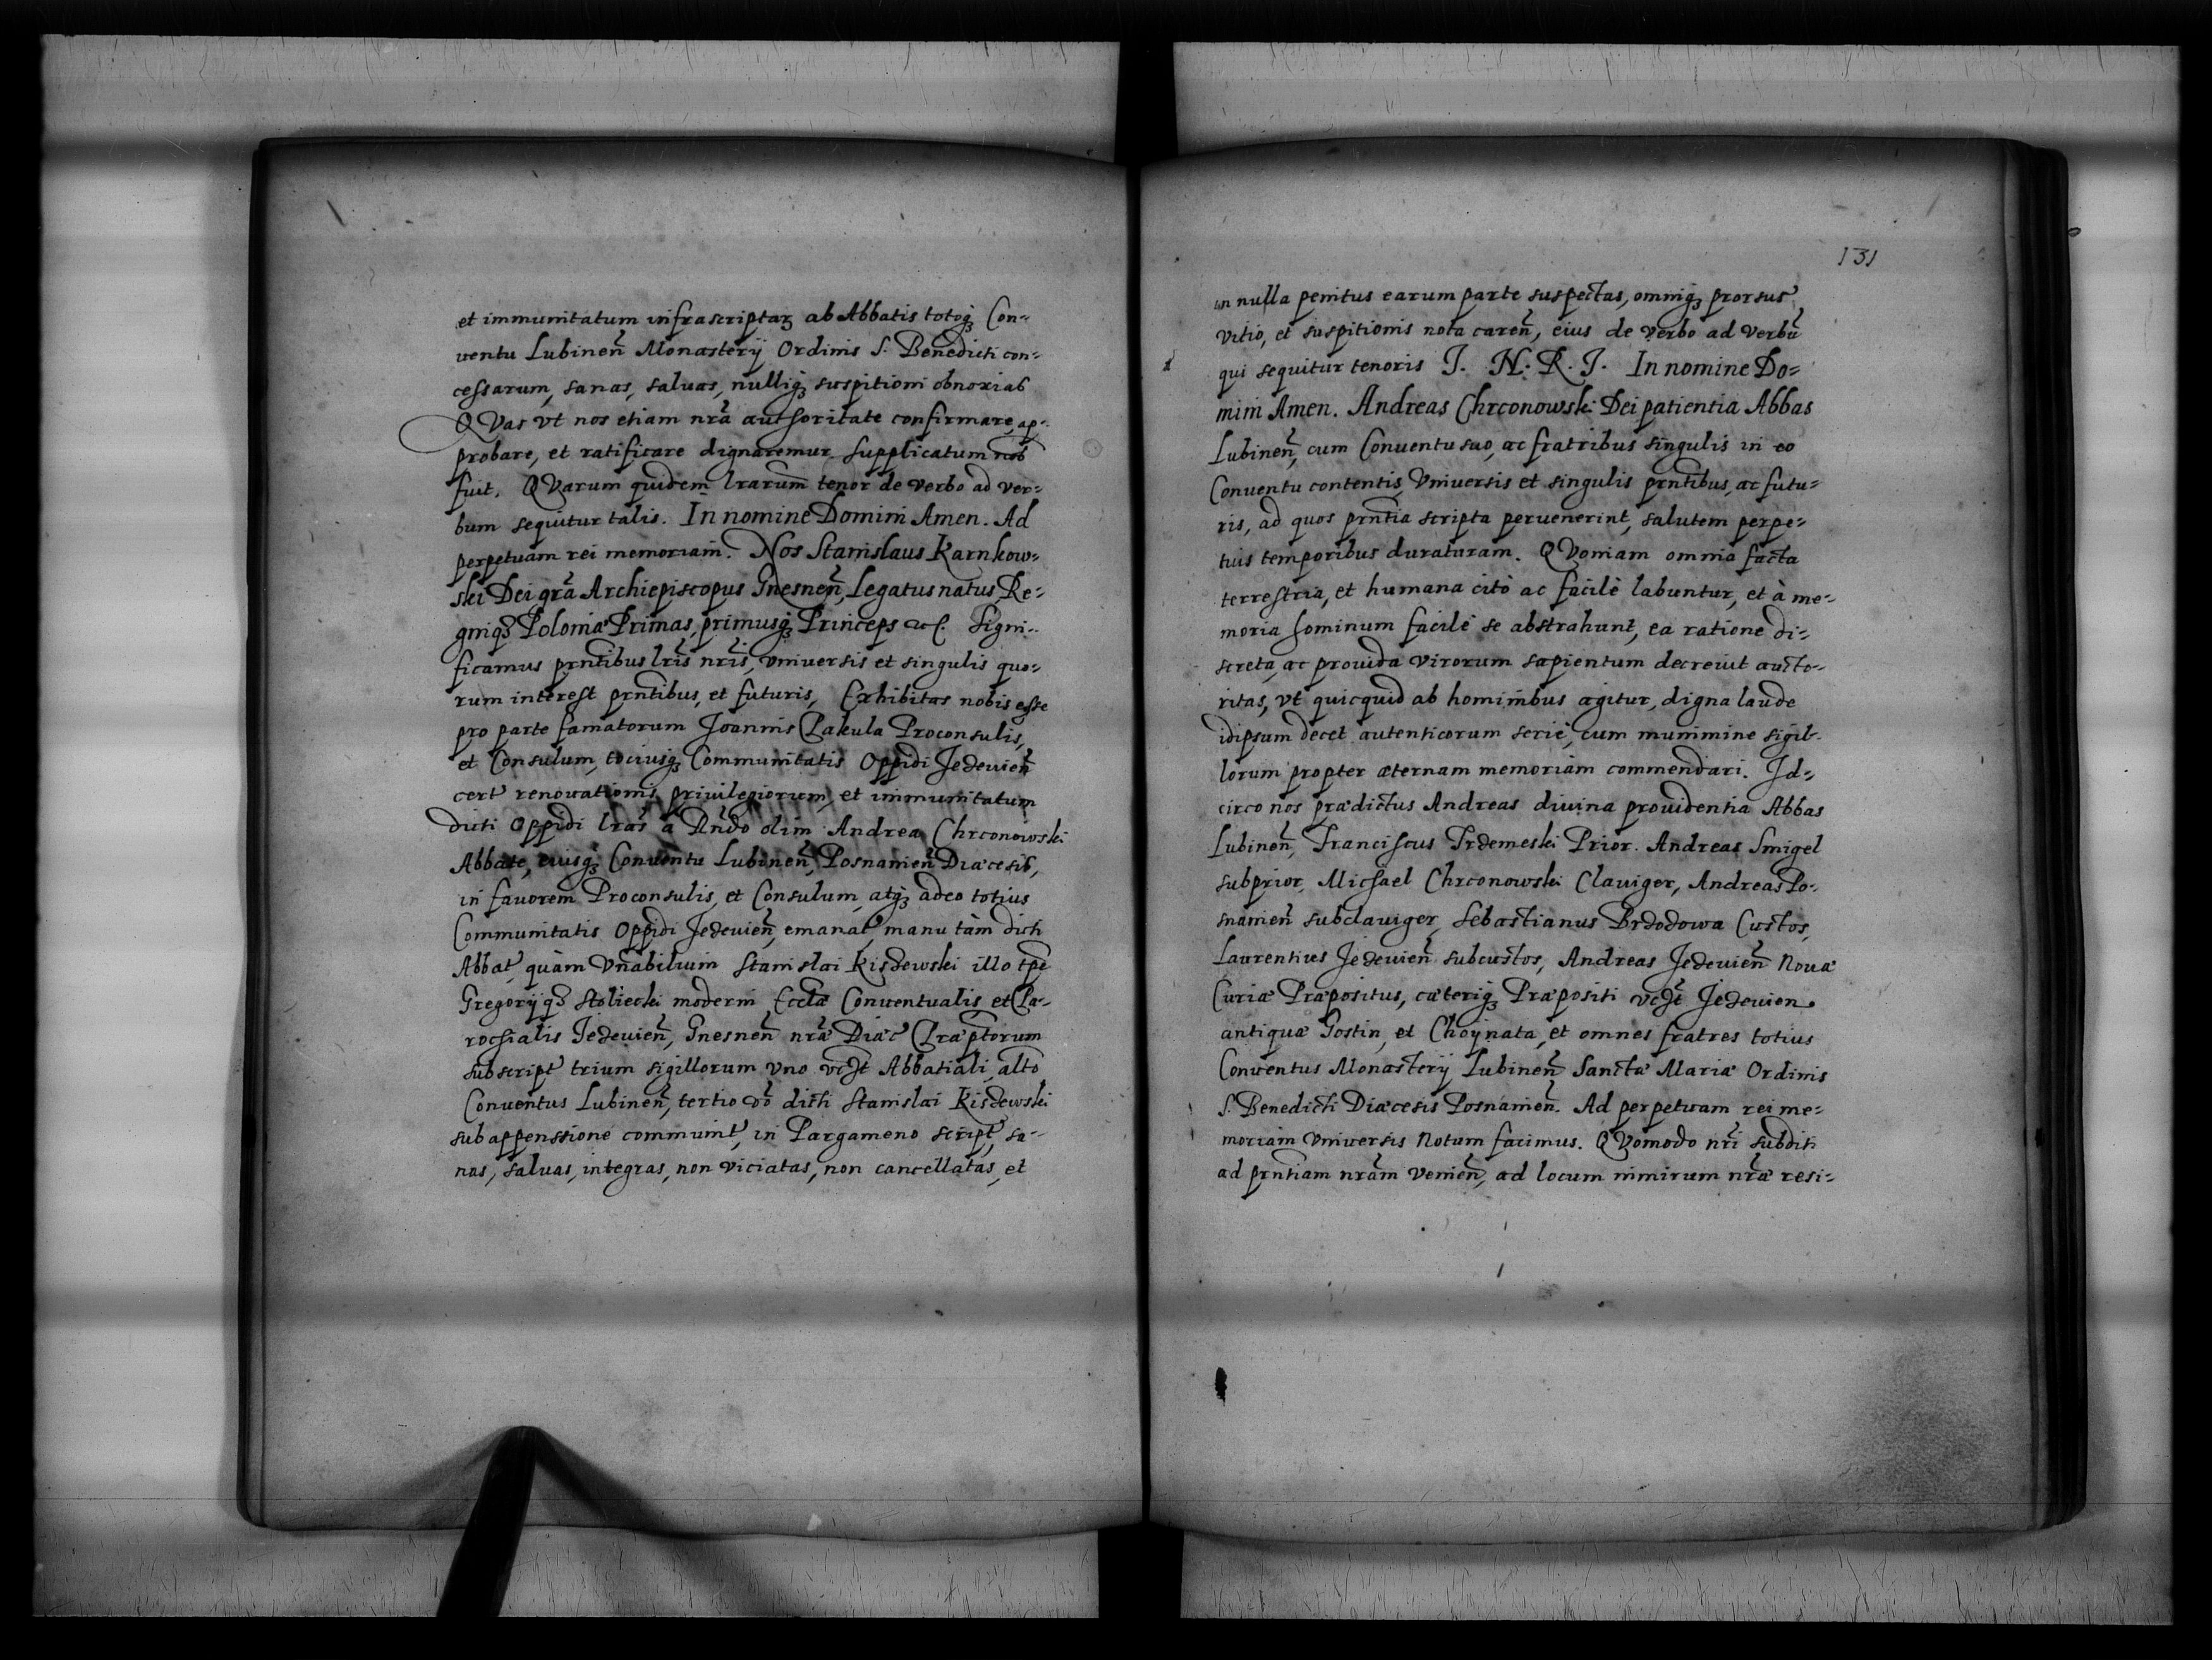 et immunitatum infrascriptarꝫ ab Abbatis totoqꝫ Con=
uentu Lubineñ Monasterij Ordinis S. Benedicti con=
cessarum, sanas, saluas, nulliqꝫ suspitioni obnoxias
QVas vt nos etiam nrã authoritate confirmare, ap=
probare, et ratificare dignaremur supplicatum nob
fuit. QVarum quidem lrarum̃ tenor de verbo ad ver=
bum sequitur talis. In nomine Domini Amen. Ad
perpetuam rei memoriam. Nos Stanislaus Karnkow=
ski Dei grã Archiepiscopus Gnesneñ, Legatus natus, Re=
gniqꝫ Poloniæ Primas, primusqꝫ Princeps etc. Signi=
ficamus prñtibus lris̃ nris̃, vniuersis et singulis quo=
rum interest prñtibus, et futuris, Exhibitas nobis esse
pro parte famatorum Joannis Pakula Proconsulis,
et Consulum, tociusqꝫ Communitatis Oppidi Jezeuieñ
cert renouationis priuilegiorum, et immunitatum
dicti Oppidi lras̃ à Rñdo olim Andrea Chrconowski
Abbate, eiusqꝫ Conuentu Lubineñ, Posnanieñ Diæcesis,
in fauorem Proconsulis, et Consulum, atqꝫ adeo totius
Communitatis Oppidi Jezeuieñ, emanat manu tàm dicti
Abbat quàm Vñabilium Stanislai Kisdewski illo tp̃e
Gregorijqꝫ Stoliecki moderni Eccłæ Conuentualis, et Pa=
rochialis Jezeuieñ, Gnesneñ nræ̃ Diæc Præptorum
subscript trium sigillorum vno vczt Abbatiali, alto
Conuentus Lubineñ, tertio võ dicti Stanislai Kisdewski
sub appenssione communit, in Pargameno script, sa=
nas, saluas, integras, non viciatas, non cancellatas, et
131
in nulla penitus earum parte suspectas, omniqꝫ prorsus
vitio, et suspitionis nota careñ, eius de verbo ad verbũ
qui sequitur tenoris J. N. R. J. In nomine Do=
mini Amen. Andreas Chrconowski Dei patientia Abbas
Lubineñ, cum Conuentu suo, ac fratribus singulis in eo
Conuentu contentis, Vniuersis et singulis prñtibus, ac futu=
ris, ad quos prñtia scripta peruenerint, salutem perpe=
tuis temporibus duraturam. QVoniam omnia facta
terrestria, et humana citò ac facilè labuntur, et à me=
moria hominum facilè se abstrahunt, ea ratione di=
screta, ac prouida virorum sapientum decreuit aucto=
ritas, vt quicquid ab hominibus agitur, digna laude
idipsum decet autenticorum serie, cum munimine sigil=
lorum propter æternam memoriam commendari. Jd=
circo nos prædictus Andreas diuina prouidentia Abbas
Lubineñ, Franciscus Trdemeski Prior. Andreas Smigel
subprior, Michael Chrconowski Clauiger, Andreas Po=
snanieñ subclauiger, Sebastianus Brdodowa Custos,
Laurentius Jezeuieñ subcustos, Andreas Jezeuieñ Nouæ
Curiæ Præpositus, cæteriqꝫ Præpositi vczt Jezeuien
antiquæ Gostin, et Choynata, et omnes fratres totius
Conuentus Monasterij Lubineñ Sanctæ Mariæ Ordinis
S. Benedicti Diæcesis Posnanieñ. Ad perpetuam rei me=
moriam vniuersis Notum facimus. QVomodo nri̇̃ subditi
ad prñtiam nrãm venieñ, ad locum nimirum nræ̃ resi=